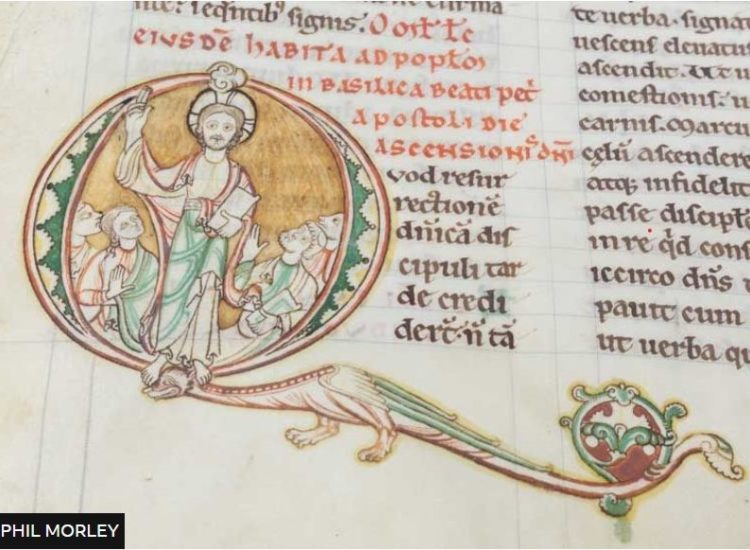 signis.
EIUSDĒ HABITA AD POPLO
IN BASILICA BEATI PET
APOSTOLI DIE
ASCENSIONIS DN̄I
Quod resur
rectionē
dn̄icā dis
cipuli tar
de credi
derēt. n̄ tā
te uerba. signa
uescens eleuatu
ascendit. Ut u
comestionis. u
carnis. Marcu
celū ascendere
atq; infidelit
passe discipl
in re qd
iccirco dn̄s
pauit eum
ut uerba qu
PHIL MORLEY